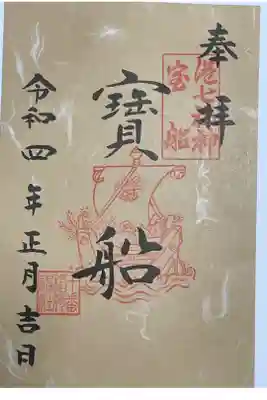 奉拝
港七福神
宝船
寶船
令和四年正月吉日